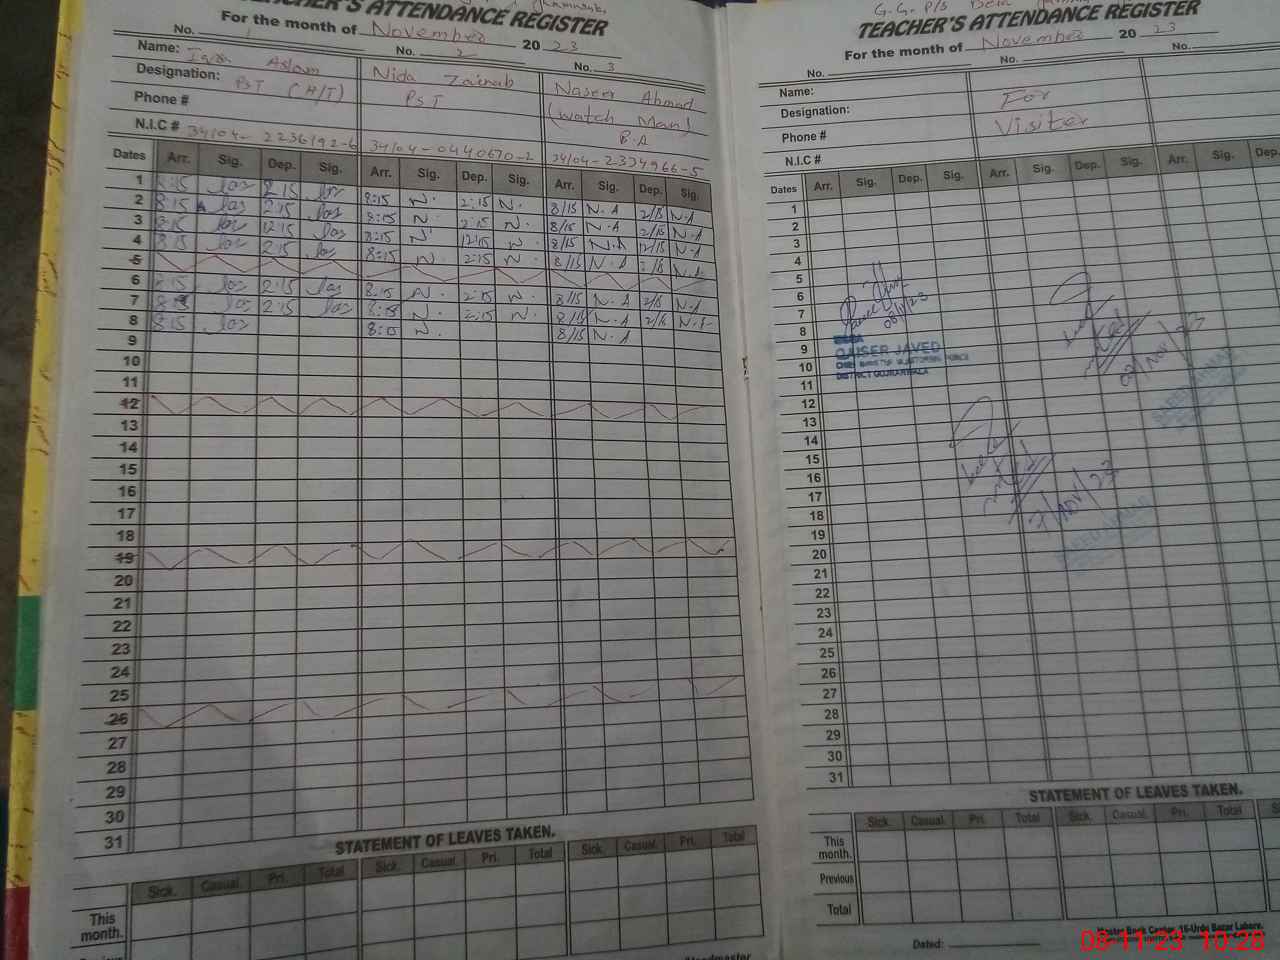 TEACHER'S ATTENDANCE REGISTER
For the month of November 2023
No. 1 No. 2 No. 3
Name: Iqra Aslam Nida Zainab Naseer Ahmad
Designation: PST (H/T) PST (Watch Man)
Phone # B.A
N.I.C # 34104- 2236192-6 34104-0440670-2 34104-2334966-5
Dates Arr. Sig. Dep. Sig. Arr. Sig. Dep. Sig. Arr. Sig. Dep. Sig.
1 8:15 2:15 8:15 N. 2:15 N. 8/15 N.A 2/15 N.A
2 8:15 2:15 8:15 N. 2:15 N. 8/15 N.A 2/15 N.A
3 8:15 12:15 8:15 N. 12:15 N. 8/15 N.A 12/15 N.A
4 8:15 2:15 8:15 N. 2:15 N. 8/15 N.A N.A
5
6 8:15 2:15 8:15 N. 2:15 N. 8/15 N.A 2/15 N.A
7 2:15 8:15 N. 2:15 N. 8/15 N.A 2/15
8 8:15 8:15 N. 8/15 N.A
9
10
11
12
13
14
15
16
17
18
19
20
21
22
23
24
25
26
27
28
29
30
31
STATEMENT OF LEAVES TAKEN.
Sick. Casual. Pri. Total Sick. Casual. Pri. Total Sick. Casual. Pri. Total
This
month.
G.G. P/S
TEACHER'S ATTENDANCE REGISTER
For the month of November 2023
No. No. No.
Name:
Designation: For
Phone # Visiter
N.I.C #
Dates Arr. Sig. Dep. Sig. Arr. Sig. Dep. Sig. Arr. Sig. Dep.
1
2
3
4
5
6
7
8
9
10
11
12
13
14
15
16
17
18
19
20
21
22
23
24
25
26
27
28
29
30
31
08/11/23
QAISER JAVED
DISTRICT GUJRANWALA
7/Nov/23
STATEMENT OF LEAVES TAKEN.
Sick. Casual. Pri. Total Sick. Casual. Pri. Total Sick.
This
month.
Previous
Total
Master Book Center, 16-Urdu Bazar Lahore.
Dated:
08-11-23 10:28